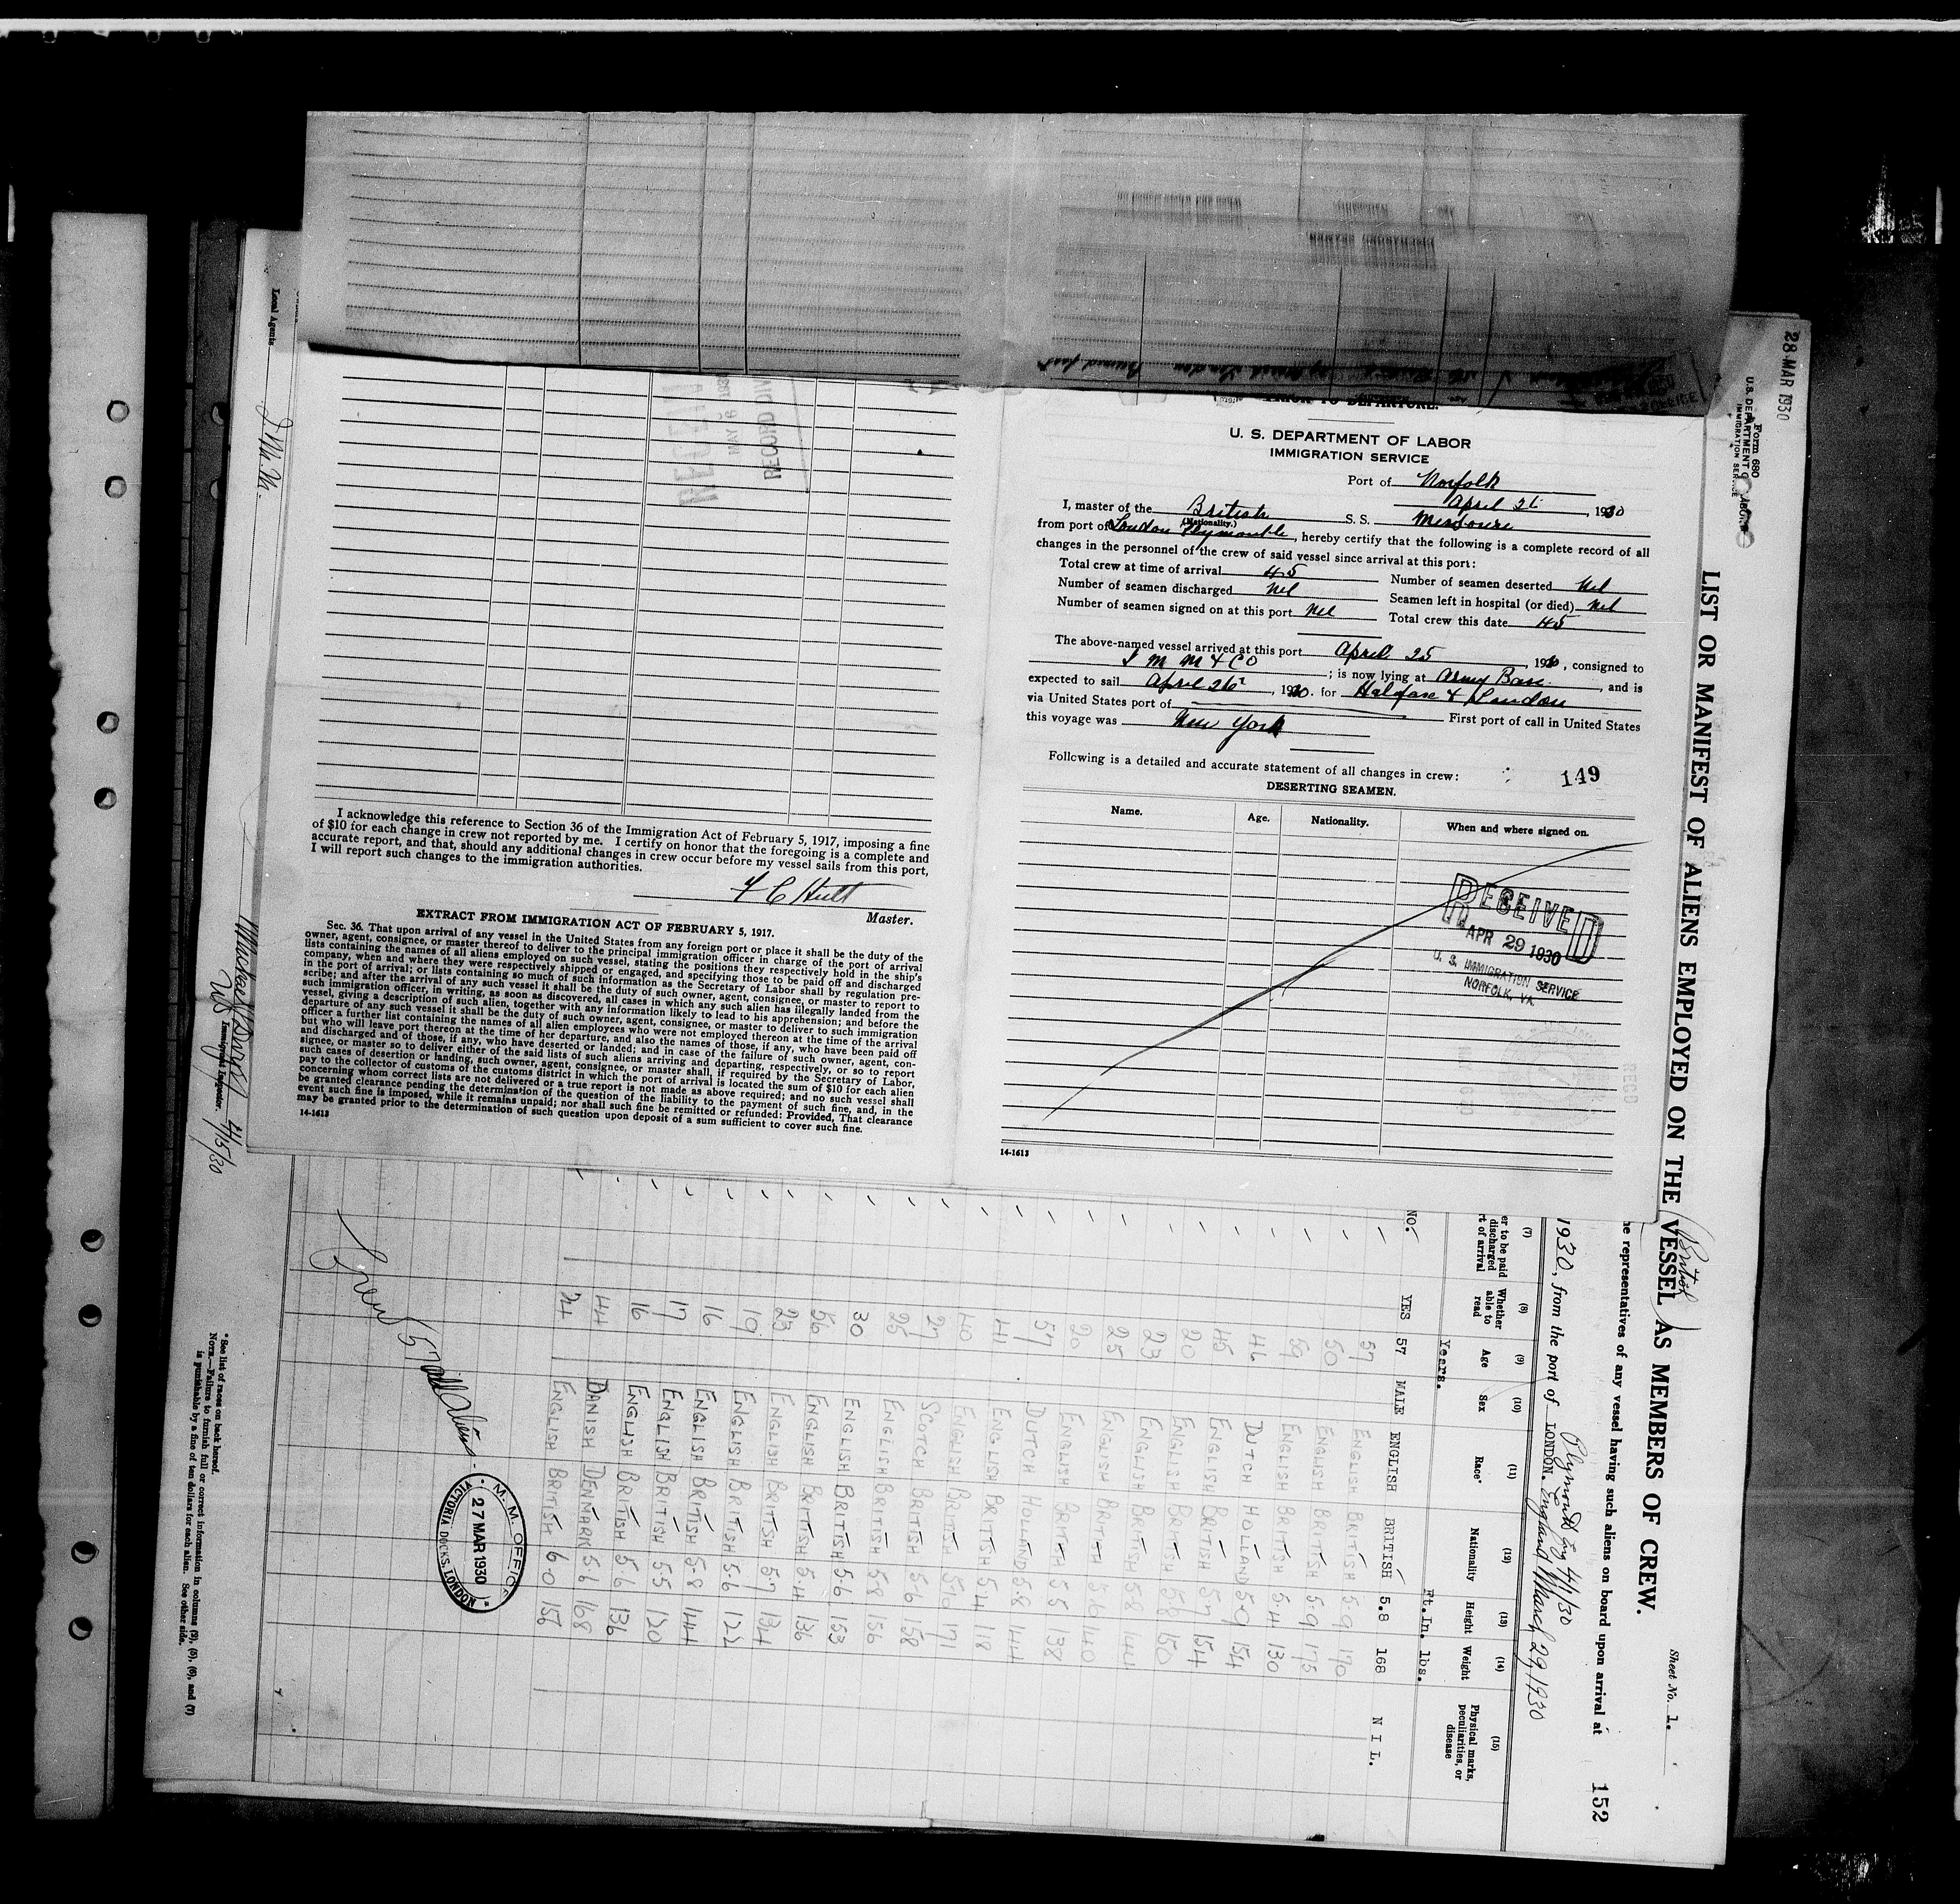 PRIOR TO DEPARTURE.
U. S. DEPARTMENT OF LABOR
IMMIGRATION SERVICE
Port of Norfolk
April 26, 1930
I, master of the British S. S. Missouri
(Nationality.)
from port of London Plymouth, hereby certify that the following is a complete record of all
changes in the personnel of the crew of said vessel since arrival at this port:
Total crew at time of arrival 45
Number of seamen deserted Nil
Number of seamen discharged Nil
Seamen left in hospital (or died) Nil
Number of seamen signed on at this port Nil
Total crew this date 45
The above-named vessel arrived at this port April 25, 1930, consigned to
I M M & Co ; is now lying at Army Base, and is
expected to sail April 26, 1930. for Halifax & London
via United States port of
First port of call in United States
this voyage was New York
Following is a detailed and accurate statement of all changes in crew:
149
DESERTING SEAMEN.
Name. Age. Nationality. When and where signed on.
RECEIVED
APR 29 1930
U. S. IMMIGRATION SERVICE
NORFOLK, VA.
14-1613
RECEIVED
MAY 6 1930
RECORD DIV
I acknowledge this reference to Section 36 of the Immigration Act of February 5, 1917, imposing a fine
of $10 for each change in crew not reported by me. I certify on honor that the foregoing is a complete and
accurate report, and that, should any additional changes in crew occur before my vessel sails from this port,
I will report such changes to the immigration authorities.
Master.
EXTRACT FROM IMMIGRATION ACT OF FEBRUARY 5, 1917.
Sec. 36. That upon arrival of any vessel in the United States from any foreign port or place it shall be the duty of the
owner, agent, consignee, or master thereof to deliver to the principal immigration officer in charge of the port of arrival
lists containing the names of all aliens employed on such vessel, stating the positions they respectively hold in the ship's
company, when and where they were respectively shipped or engaged, and specifying those to be paid off and discharged
in the port of arrival; or lists containing so much of such information as the Secretary of Labor shall by regulation pre-
scribe; and after the arrival of any such vessel it shall be the duty of such owner, agent, consignee, or master to report to
such immigration officer, in writing, as soon as discovered, all cases in which any such alien has illegally landed from the
vessel, giving a description of such alien, together with any information likely to lead to his apprehension; and before the
departure of any such vessel it shall be the duty of such owner, agent, consignee, or master to deliver to such immigration
officer a further list containing the names of all alien employees who were not employed thereon at the time of the arrival
but who will leave port thereon at the time of her departure, and also the names of those, if any, who have been paid off
and discharged and of those, if any, who have deserted or landed; and in case of the failure of such owner, agent, con-
signee, or master so to deliver either of the said lists of such aliens arriving and departing, respectively, or so to report
such cases of desertion or landing, such owner, agent, consignee, or master shall, if required by the Secretary of Labor,
pay to the collector of customs of the customs district in which the port of arrival is located the sum of $10 for each alien
concerning whom correct lists are not delivered or a true report is not made as above required; and no such vessel shall
be granted clearance pending the determination of the question of the liability to the payment of such fine, and, in the
event such fine is imposed, while it remains unpaid; nor shall such fine be remitted or refunded: Provided, That clearance
may be granted prior to the determination of such question upon deposit of a sum sufficient to cover such fine.
14-1613
28 MAR 1930
Form 680
U. S. DEPARTMENT OF LABOR
IMMIGRATION SERVICE
LIST OR MANIFEST OF ALIENS EMPLOYED ON THE VESSEL AS MEMBERS OF CREW.
(British)
Sheet No. 1.
representatives of any vessel having such aliens on board upon arrival at
152
Plymouth Eng 4/1/30
1930, from the port of LONDON. England March 29, 1930
(7) (8) (9) (10) (11) (12) (13) (14) (15)
to be paid discharged of arrival
Whether able to read
Age
Sex
Race*
Nationality
Height
Weight
Physical marks, peculiarities, or disease
Years. Ft.In. lbs.
NO. YES 57 MALE ENGLISH BRITISH 5.8 168 NIL.
57 ENGLISH BRITISH 5.9 170
50 ENGLISH BRITISH 5.9 175
59 ENGLISH BRITISH 5.4 130
46 DUTCH HOLLAND 5.9 154
45 ENGLISH BRITISH 5.7 154
20 ENGLISH BRITISH 5.8 150
23 ENGLISH BRITISH 5.8 144
25 ENGLISH BRITISH 5.6 140
20 ENGLISH BRITISH 5.5 138
57 DUTCH HOLLAND 5.8 144
41 ENGLISH BRITISH 5.4 118
40 ENGLISH BRITISH 5.10 171
27 SCOTCH BRITISH 5.6 158
25 ENGLISH BRITISH 5.8 156
30 ENGLISH BRITISH 5.6 153
56 ENGLISH BRITISH 5.4 136
23 ENGLISH BRITISH 5.7 134
19 ENGLISH BRITISH 5.6 122
16 ENGLISH BRITISH 5.8 144
17 ENGLISH BRITISH 5.5 120
16 ENGLISH BRITISH 5.6 136
44 DANISH DENMARK 5.6 168
24 ENGLISH BRITISH 6.0 156
M. M. OFFICE
27 MAR 1930
VICTORIA DOCKS, LONDON
Local Agents I. M. M.
Immigrant Inspector.
4/15/30
* See list of races on back hereof.
NOTE.—Failure to furnish full or correct information in columns (3), (5), (6), and (7)
is punishable by a fine of ten dollars for each alien. See other side.